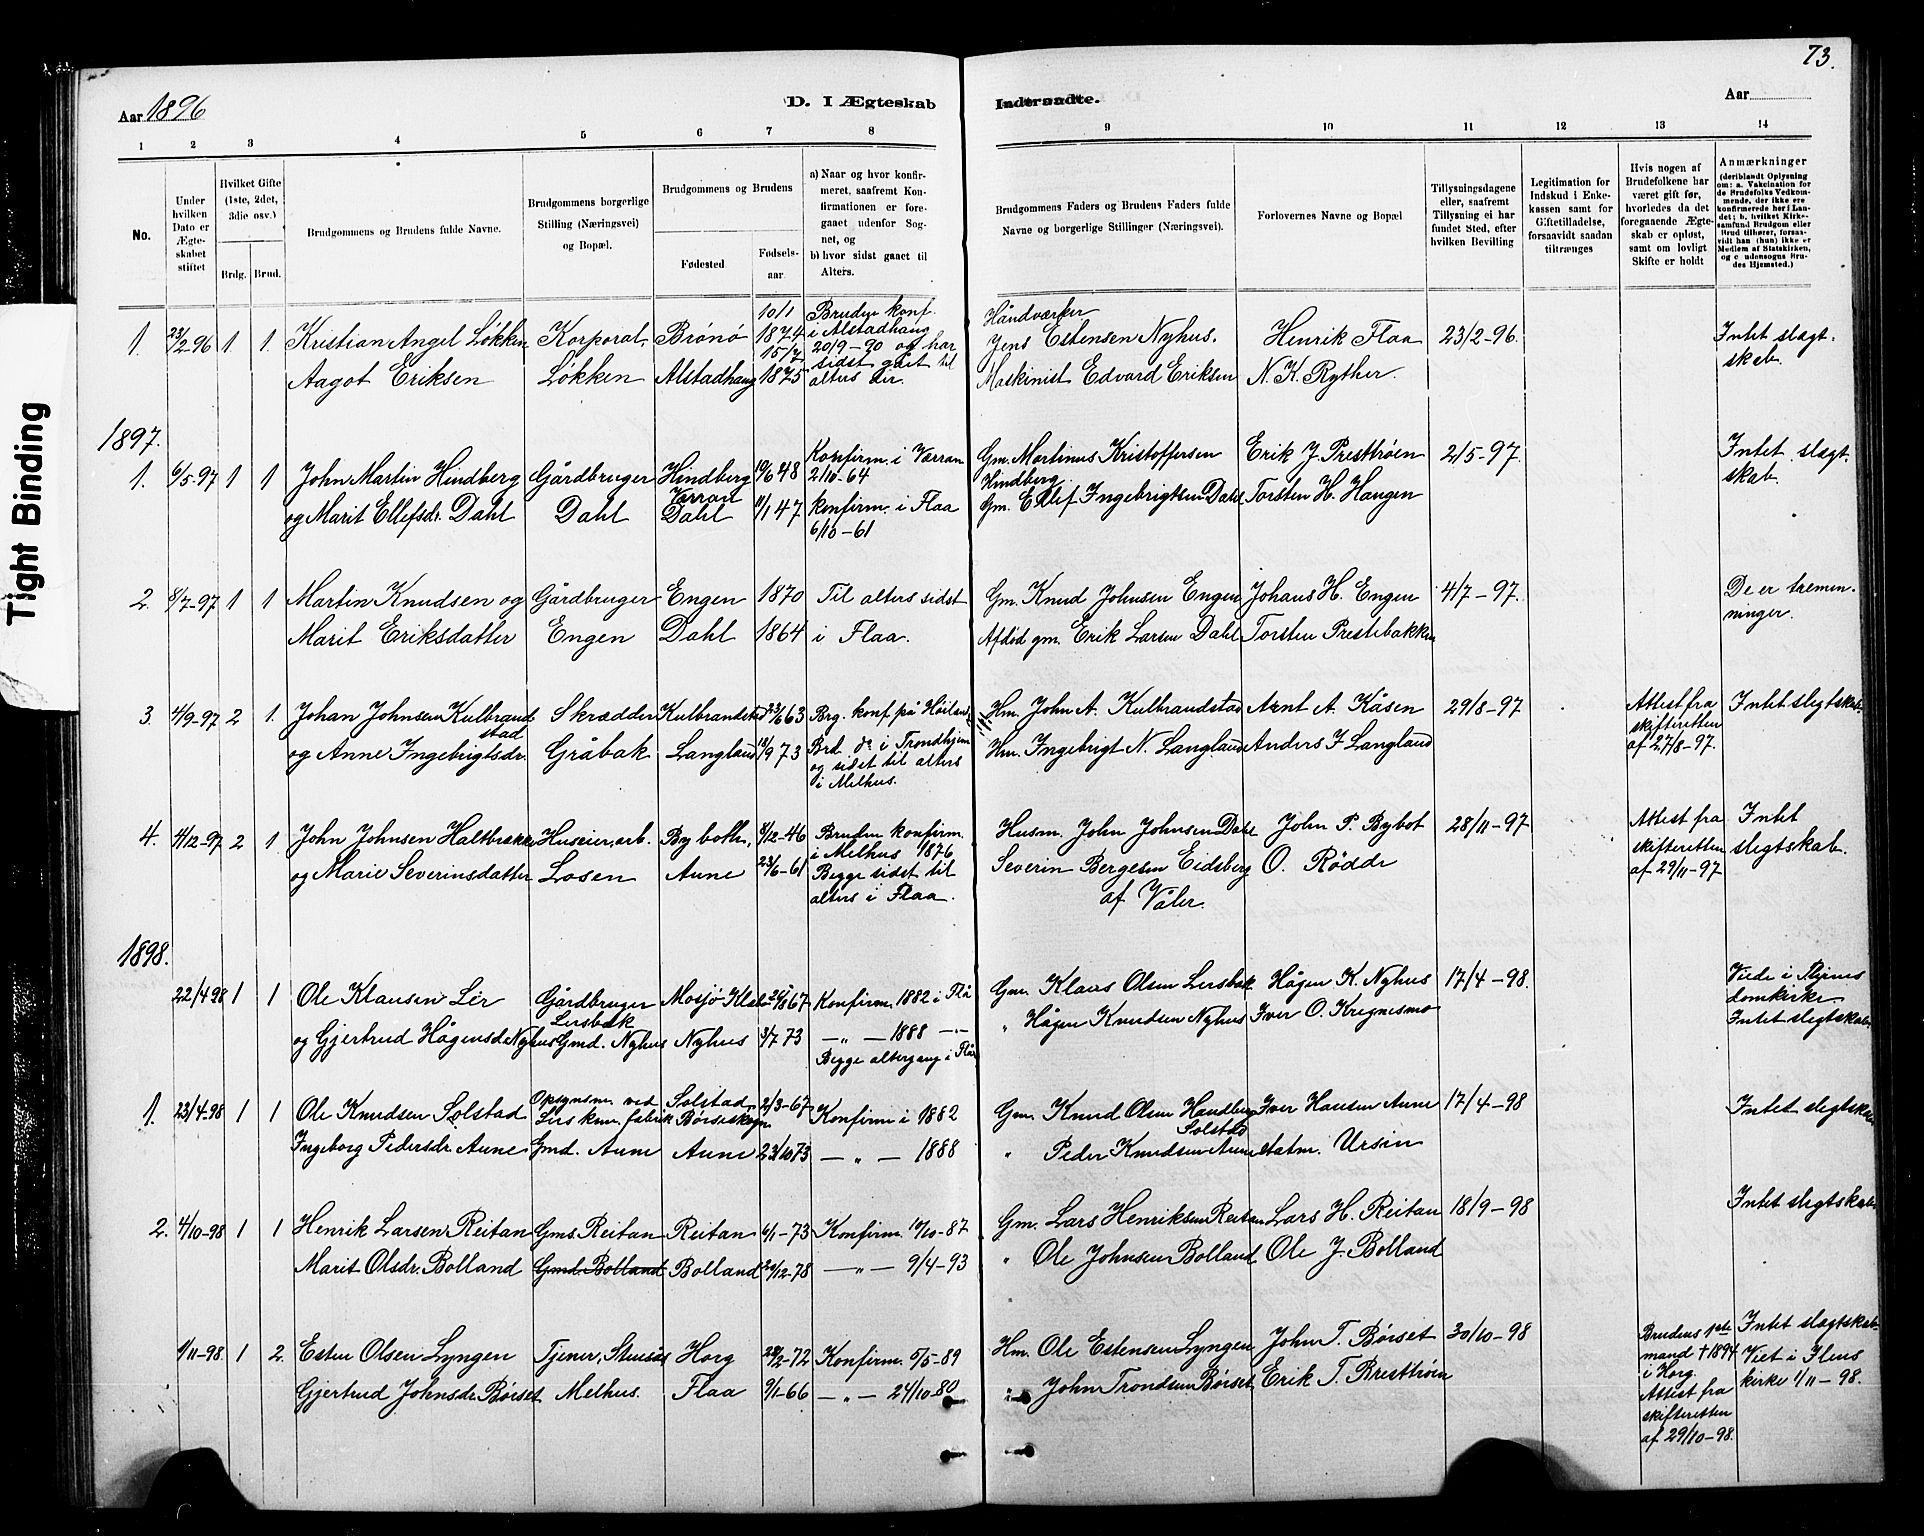 73.
Aar 1896
D. I Ægteskab Indtraadte.
Aar
1 2 3 4 5 6 7 8 9 10 11 12 13 14
No.
Under hvilken Dato er Ægteskabet stiftet
Hvilket Gifte (1ste, 2det, 3die osv.)
Brdg. Brud.
Brudgommens og Brudens fulde Navne.
Brudgommens borgerlige Stilling (Næringsvei) og Bopæl.
Brudgommens og Brudens
Fødested. Fødselsaar.
a) Naar og hvor konfirmeret, saafremt Konfirmationen er foregaaet udenfor Sognet, og
b) hvor sidst gaaet til Alters.
Brudgommens Faders og Brudens Faders fulde Navne og borgerlige Stillinger (Næringsvei).
Forlovernes Navne og Bopæl
Tillysningsdagene eller, saafremt Tillysning ei har fundet Sted, efter hvilken Bevilling
Legitimation for Indskud i Enkekassen samt for Giftetilladelse, forsaavidt saadan tiltrænges
Hvis nogen af Brudefolkene har været gift før, hvorledes da det foregaaende Ægteskab er opløst, samt om lovligt Skifte er holdt
Anmærkninger
(deriblandt Oplysning om: a. Vakcination for de Brudefolks Vedkommende, der ikke ere konfirmerede her i Landet; b. hvilket Kirkesamfund Brudgom eller Brud tilhører, forsaavidt han (hun) ikke er Medlem af Statskirken, og c. udensogns Brudes Hjemsted.)
1. 23/2-96 1 1. Kristian Angel Løkken Korporal, Brønø 10/1 1874 Håndværker Jens Estensen Nyhus. Henrik Flaa 23/2-96. Intet slægtskab.
Aagot Eriksen Løkken Alstadhaug 15/7 1875 Bruden konf. i Alstadhaug 20/9-90 og har sidst gået til alters der. Maskinist Edvard Eriksen N. K. Ryther.
1897.
1. 6/5-97 1 1 John Martin Hindberg Gårdbruger Hindberg Værran 19/6 48 Konfirm. i Værran 2/10-64 Gm. Martinus Kristoffersen Hindberg Erik J. Prestrøen 2/5-97. Intet slægtskab.
og Marit Ellefsdr. Dahl Dahl Dahl 11/1 47 konfirm. i Flaa 6/10-61 Gm. Ellef Ingebrigtsen Dahl Torsten H. Haugen
2. 8/7-97 1 1 Martin Knudsen og Gårdbruger Engen 1870 Til alters sidst Gm. Knud Johnsen Engen Johans H. Engen 4/7-97. De er tremenninger.
Marit Eriksdatter Engen Dahl 1864 i Flaa. Afdød gm. Erik Larsen Dahl Torsten Prestebakken
3. 4/9-97 2 1. Johan Johnsen Kulbrandstad Skrædder Kulbrandstad 23/6 63 Brg. konf. på Høilan. Hm. John A. Kulbrandstad Arnt A. Kåsen 29/8-97 Attest fra skifteretten af 27/8-97. Intet slegtskab.
og Anne Ingebrigtsdr. Gråbak Langland 18/9 73 Brd. do i Trondhjem og sidst til alters i Melhus. Hm. Ingebrigt N. Langland Anders J Langland
4. 4/12-97 2 1. John Johnsen Haltbrekke Huseier, arb. Byboth., 8/12-46 Bruden konfirm. i Melhus 1876 Husm. John Johnsen Dahl John P. Bybot 28/11-97 Attest fra skifteretten af 29/11-97 Intet slegtskab.
og Marie Severinsdatter Losen Aune 23/6-61 Begge sidst til alters i Flaa. Severin Bergesen Eidsberg af Våler. O. Rødde
1898.
22/4 98 1 1 Ole Klausen Ler Gårdbruger Lersbak Mosjø Klæbu 26/8 67 Konfirm. 1882 i Flå Gm. Klaus Olsen Lersbak Hågen K. Nyhus 17/4-98. Viede i Tr.hjems domkirke Intet slegtskab.
og Gjertrud Hågensd. Nyhus Gmd. Nyhus Nyhus 3/7 73 —„— 1888 —„— Begge altergang i Flå „ Hågen Knudsen Nyhus Iver O. Kregnesmo
1. 23/4-98 1 1 Ole Knudsen Solstad Opsynsm. ved Lers kem. fabrik Solstad, Børseskogn 2/3-67 Konfirm i 1882 Gm. Knud Olsen Handberg Solstad Iver Hansen Aune 17/4-98 Intet slegtskab
Ingeborg Pedersdr. Aune Gmd. Aune Aune 23/10 73 —„— 1888 „ Peder Knudsen Aune statm. Ursin
2. 4/10-98 1 1 Henrik Larsen Reitan Gms. Reitan Reitan 6/1-73 Konfirm. 19/10-87 Gm. Lars Henriksen Reitan Lars H. Reitan 18/9-98 Intet slegtskab
Marit Olsdr. Bolland Gmd. Bolland Bolland 29/12-78 —„— 9/4-93 „ Ole Johnsen Bolland Ole J. Bolland
1/11-98. 1 2. Esten Olsen Lyngen Tjener, Horg 28/2-72 Konfirm. 5/5-89 Hm. Ole Estensen Lyngen John T. Børset 30/10-98 Brudens 1ste mand † 1894 i Horg. Attest fra skifteretten af 29/10-98. Intet slægtskab. Viet i Ilens kirke 1/11-98.
Gjertrud Johnsdr. Børset Melhus. Flaa 9/1-66 —„— 24/10-80 „ John Trondsen Børset Erik T. Prestrøen
Tight Binding